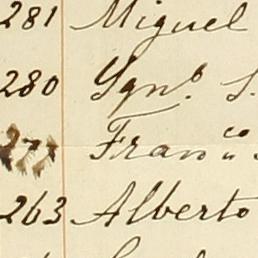 281 Miguel
280 Ygn.º S.
Fran.co
263 Alberto